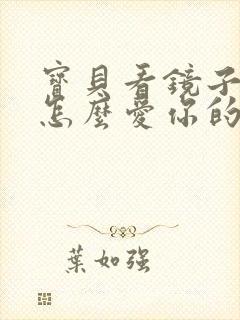 寶貝看鏡子
怎麼愛你的
葉如強